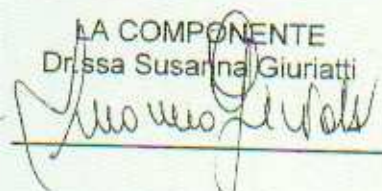 LA COMPONENTE
Dr.ssa Susanna Giuriatti